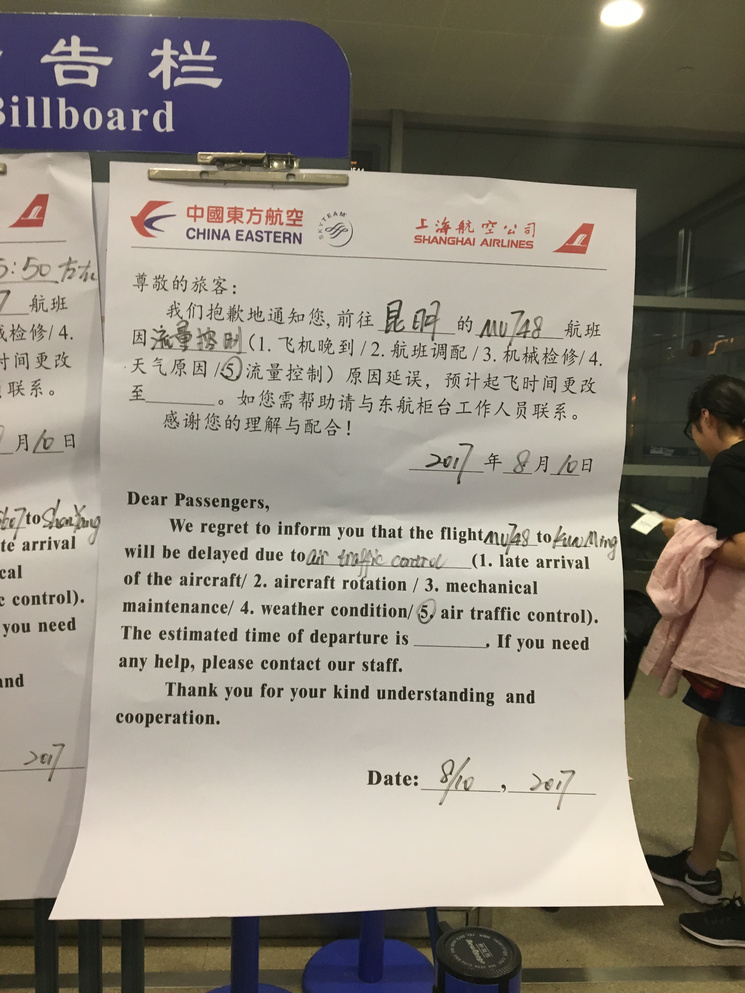 告栏
Billboard
中國東方航空
CHINA EASTERN
SKYTEAM
上海航空公司
SHANGHAI AIRLINES
尊敬的旅客：
我们抱歉地通知您,前往 昆明 的 MU748 航班
因流量控制(1. 飞机晚到/2. 航班调配/3. 机械检修/4.
天气原因/5 流量控制）原因延误，预计起飞时间更改
至______。如您需帮助请与东航柜台工作人员联系。
感谢您的理解与配合！
2017 年 8 月 10 日
Dear Passengers,
We regret to inform you that the flight MU748 to KunMing
will be delayed due to air traffic control (1. late arrival
of the aircraft/ 2. aircraft rotation / 3. mechanical
maintenance/ 4. weather condition/ 5. air traffic control).
The estimated time of departure is ______. If you need
any help, please contact our staff.
Thank you for your kind understanding and
cooperation.
Date: 8/10 , 2017
5:50左右
7 航班
械检修/4.
时间更改
联系。
月 10 日
to ShenYang
te arrival
cal
c control).
you need
and
2017